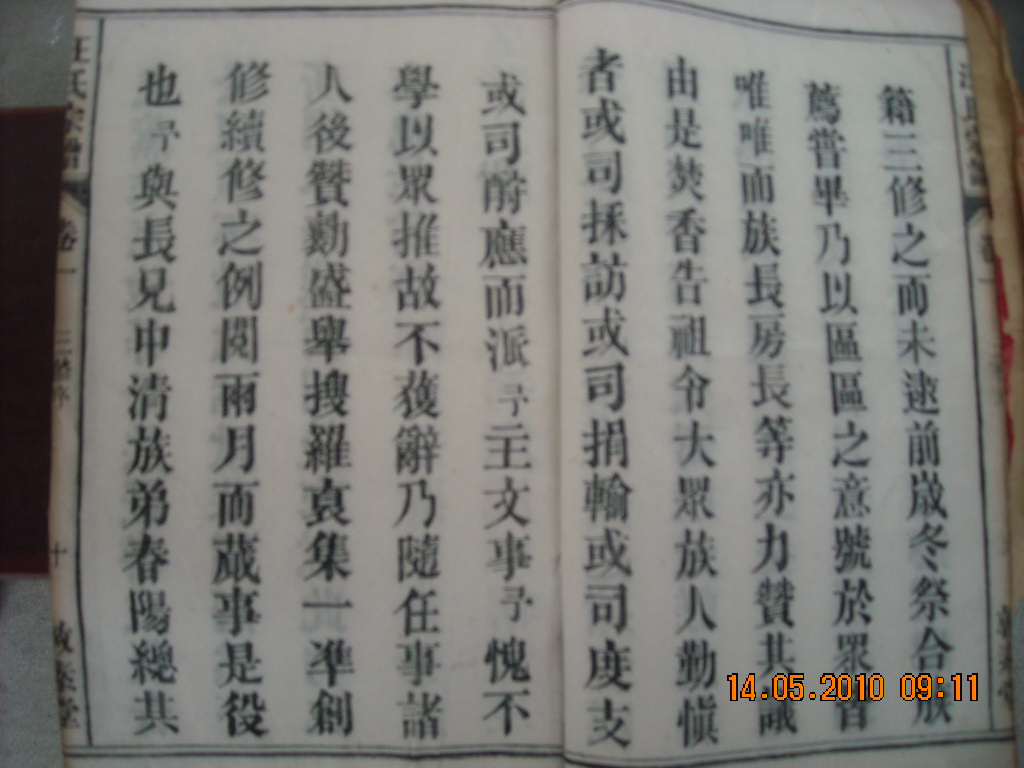 籍三修之而未逮前歲冬祭合族
薦嘗畢乃以區區之意號於眾皆
唯唯而族長房長等亦力贊其議
由是焚香告祖令大眾族人勤慎
者或司採訪或司捐輸或司度支
或司酧應而派予主文事予愧不
學以眾推故不獲辭乃隨任事諸
人後贊勷盛舉搜羅裒集一準創
修續修之例閱兩月而蕆事是役
也予與長兄申清族弟春陽總其
汪氏宗譜 卷一 三修序 十 敦本堂
14.05.2010 09:11